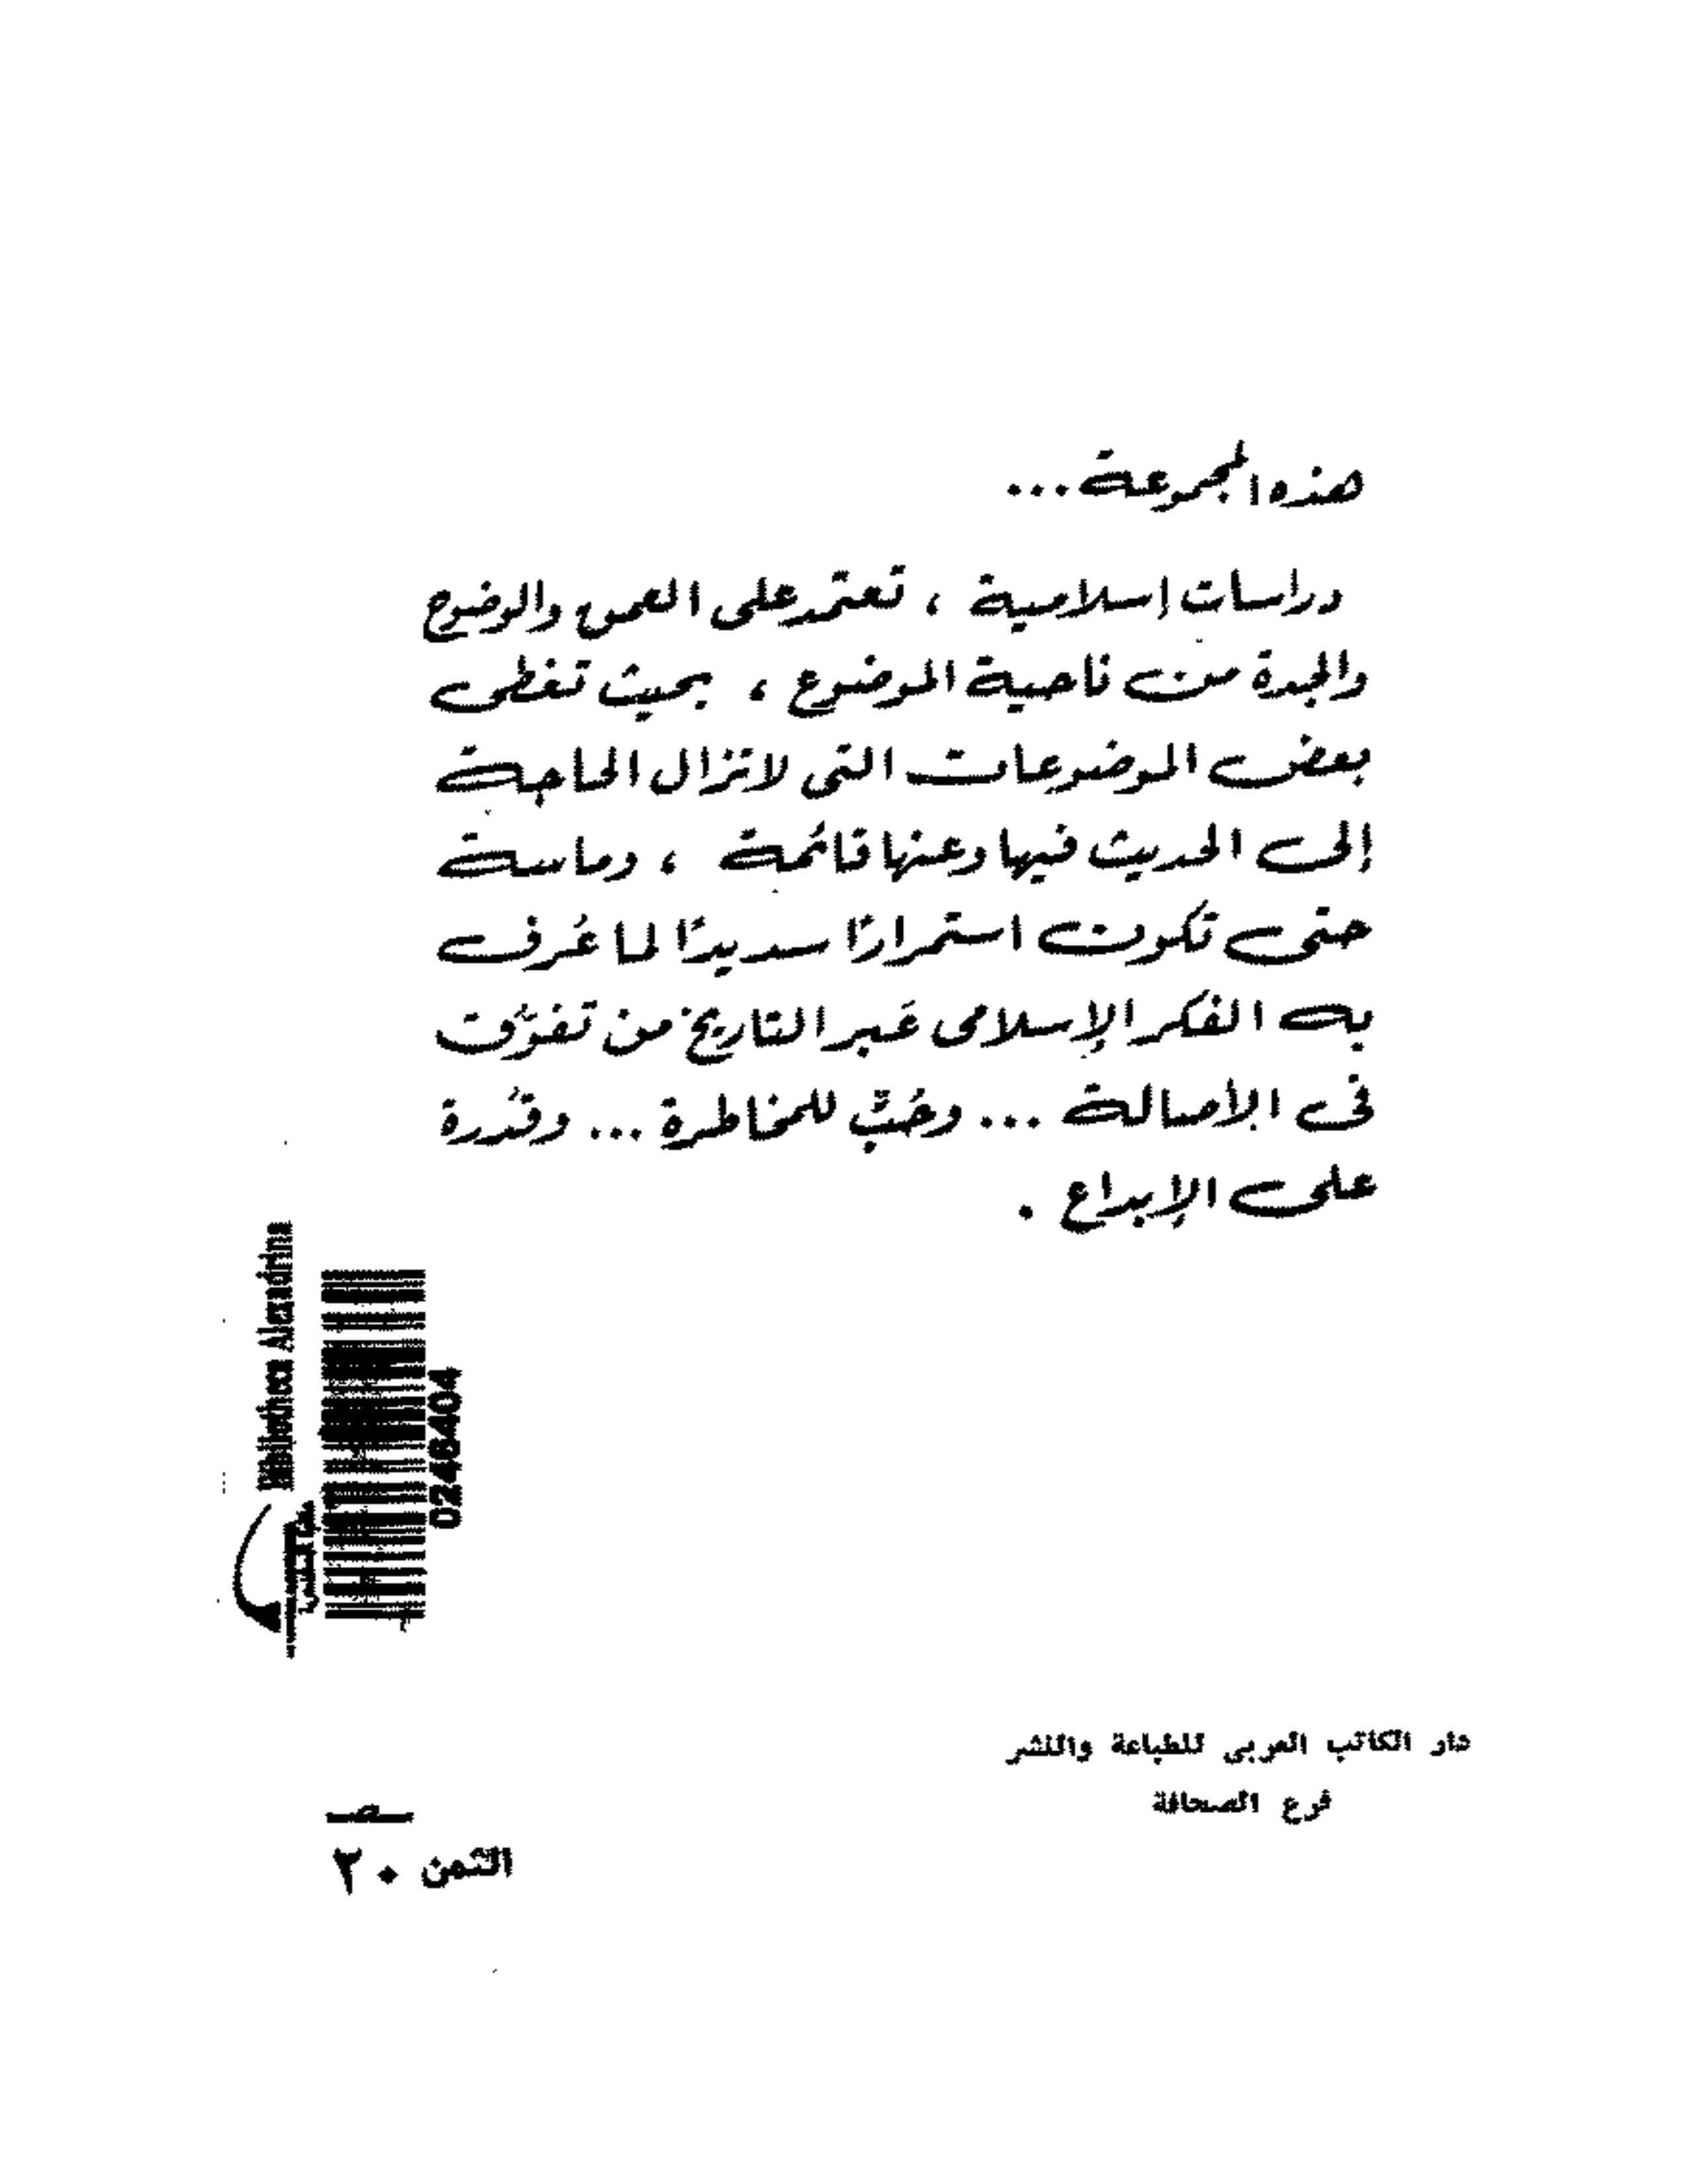 هذه المجموعة ...
دراسات إسلامية ، تعتمد على العمق والوضوح
والجدة من ناحية الموضوع ، بحيث تغطى
بعض الموضوعات التى لا تزال الحاجة
إلى الحديث فيها وعنها قائمة ، وماسة
حتى تكون استمرارًا سديدًا لما عُرف
به الفكر الإسلامى عَبر التاريخ من تفوّق
فى الأصالة ... وحُبّ للمخاطرة ... وقُدرة
على الإبداع .
Bibliotheca Alexandrina
0246404
دار الكاتب العربى للطباعة والنشر
فرع الصحافة
الثمن ٢٠